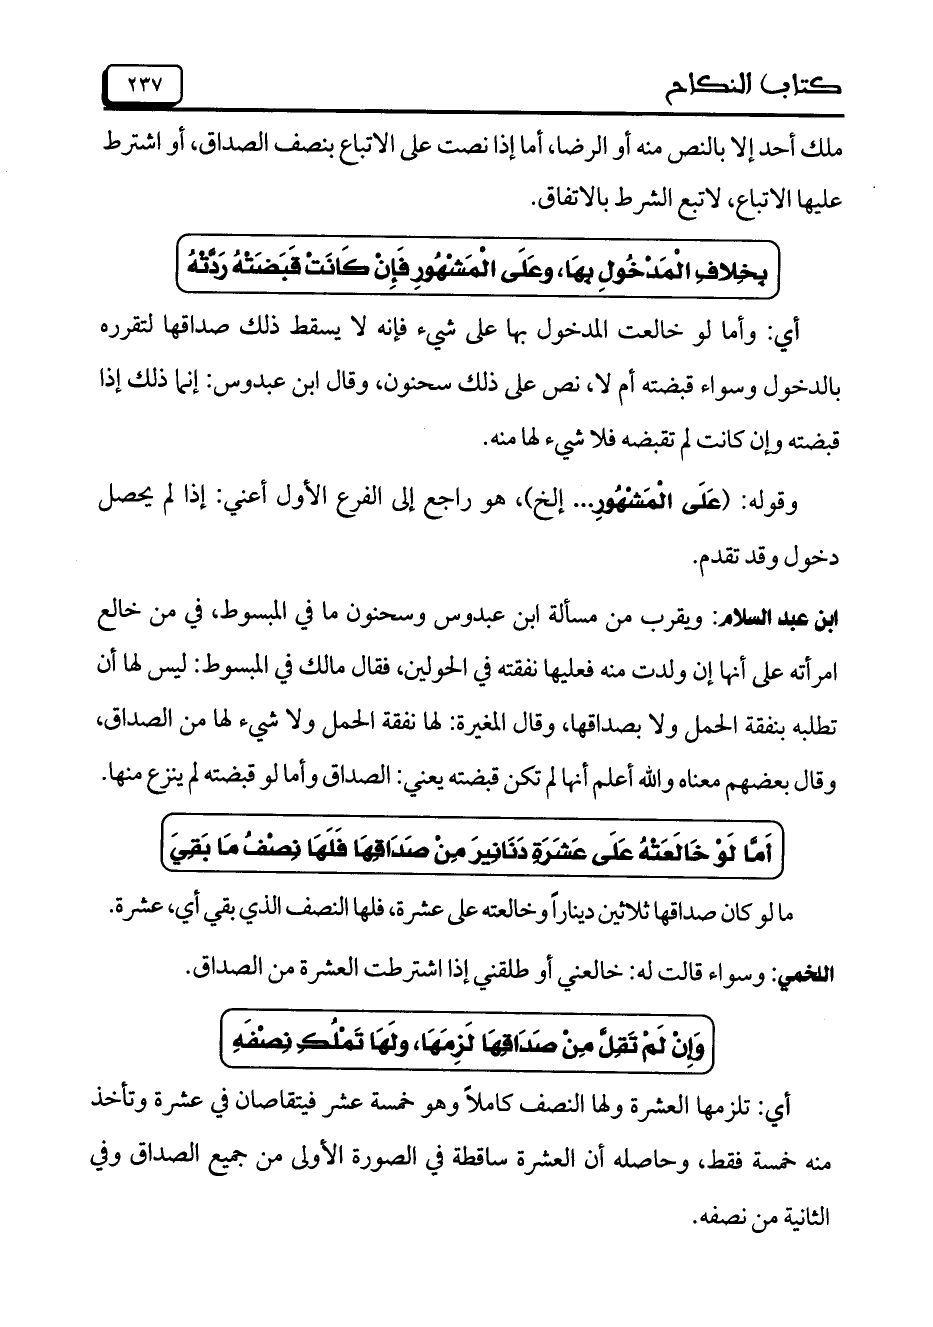 كتاب النكاح
٢٣٧
ملك أحد إلا بالنص منه أو الرضا، أما إذا نصت على الاتباع بنصف الصداق، أو اشترط
عليها الاتباع، لاتبع الشرط بالاتفاق.
بِخِلافِ الْمَدْخُولِ بِهَا، وعَلَى الْمَشْهُورِ فَإِنْ كَانَتْ قَبَضَتْهُ رَدَّتْهُ
أي: وأما لو خالعت المدخول بها على شيء فإنه لا يسقط ذلك صداقها لتقرره
بالدخول وسواء قبضته أم لا، نص على ذلك سحنون، وقال ابن عبدوس: إنما ذلك إذا
قبضته وإن كانت لم تقبضه فلا شيء لها منه.
وقوله: (عَلَى الْمَشْهُورِ... إلخ)، هو راجع إلى الفرع الأول أعني: إذا لم يحصل
دخول وقد تقدم.
ابن عبد السلام: ويقرب من مسألة ابن عبدوس وسحنون ما في المبسوط، في من خالع
امرأته على أنها إن ولدت منه فعليها نفقته في الحولين، فقال مالك في المبسوط: ليس لها أن
تطلبه بنفقة الحمل ولا بصداقها، وقال المغيرة: لها نفقة الحمل ولا شيء لها من الصداق،
وقال بعضهم معناه والله أعلم أنها لم تكن قبضته يعني: الصداق وأما لو قبضته لم ينزع منها.
أَمَّا لَوْ خَالَعَتْهُ عَلَى عَشَرَةِ دَنَانِيرَ مِنْ صَدَاقِهَا فَلَهَا نِصْفُ مَا بَقِيَ
ما لو كان صداقها ثلاثين ديناراً وخالعته على عشرة، فلها النصف الذي بقي أي، عشرة.
اللخمي: وسواء قالت له: خالعني أو طلقني إذا اشترطت العشرة من الصداق.
وَإِنْ لَمْ تَقِلَّ مِنْ صَدَاقِهَا لَزِمَهَا، ولَهَا تَمْلُكِ نِصْفَهِ
أي: تلزمها العشرة ولها النصف كاملاً وهو خمسة عشر فيتقاصان في عشرة وتأخذ
منه خمسة فقط، وحاصله أن العشرة ساقطة في الصورة الأولى من جميع الصداق وفي
الثانية من نصفه.